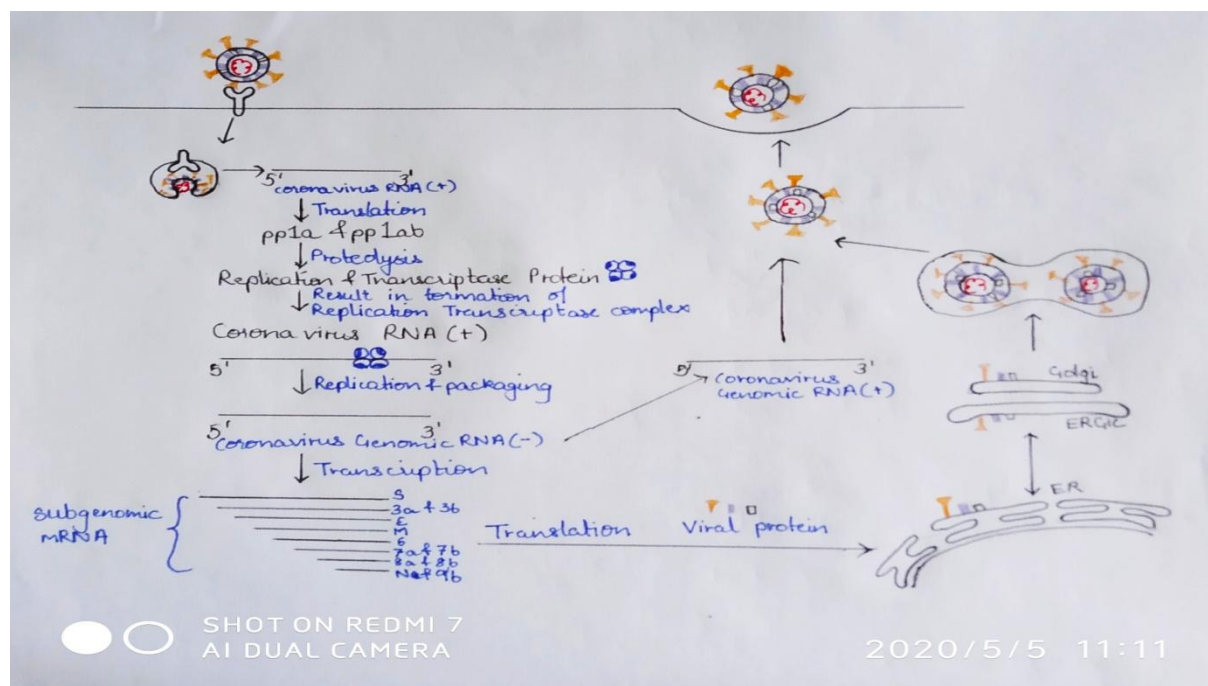 5' 3'
coronavirus RNA (+)
Translation
pp1a & pp1ab
Proteolysis
Replication & Transcriptase Protein
Result in formation of
Replication Transcriptase complex
Corona virus RNA (+)
5' 3'
Replication & packaging
5' 3'
Coronavirus Genomic RNA (-)
Transcription
Subgenomic
mRNA
S
3a & 3b
E
M
6
7a & 7b
8a & 8b
N & 9b
Translation
Viral protein
5' 3'
Coronavirus
Genomic RNA (+)
Golgi
ERGIC
ER
SHOT ON REDMI 7
AI DUAL CAMERA
2020/5/5 11:11